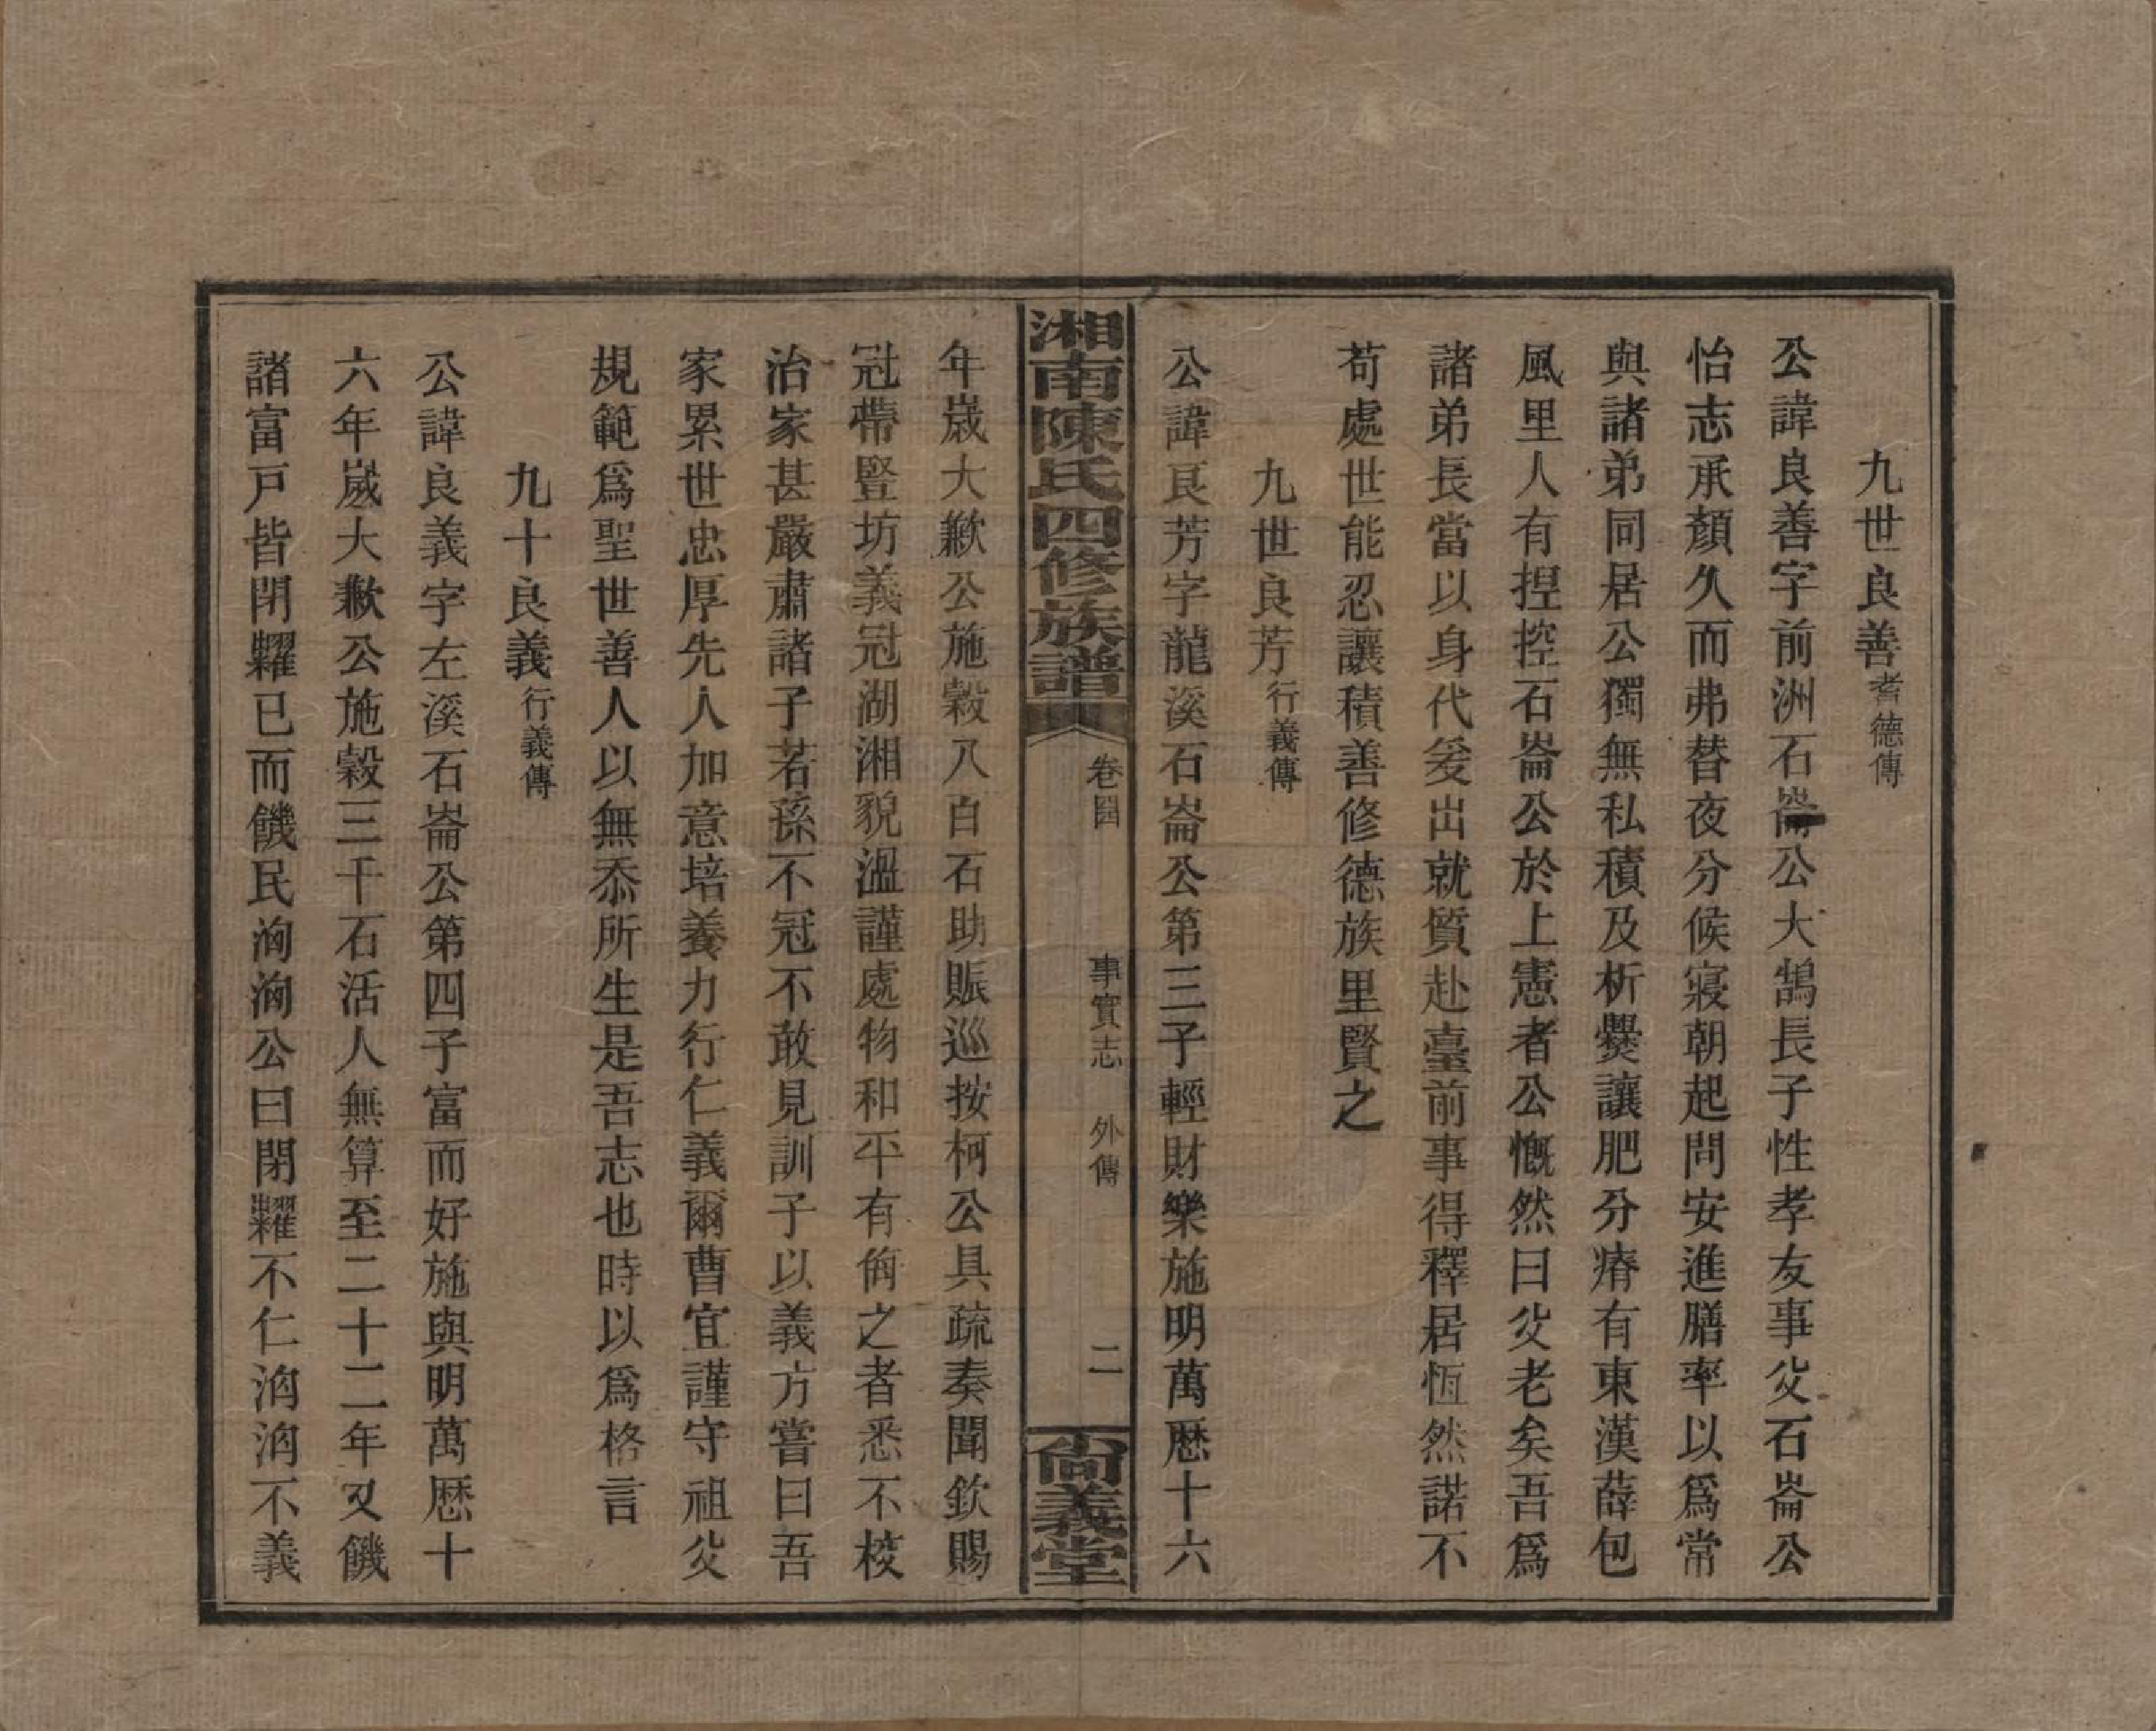 九世良善耆德傳
公諱良善字前洲石崙公大鵠長子性孝友事父石崙公
怡志承顏久而弗替夜分候寢朝起問安進膳率以爲常
與諸弟同居公獨無私積及析爨讓肥分瘠有東漢薛包
風里人有捏控石崙公於上憲者公慨然曰父老矣吾爲
諸弟長當以身代爰出就質赴臺前事得釋居恆然諾不
苟處世能忍讓積善修德族里賢之
九世良芳行義傳
公諱良芳字龍溪石崙公第三子輕財樂施明萬厯十六
湘南陳氏四修族譜
卷
事實志 外傳
二
尚義堂
年嵗大歉公施穀八百石助賑巡按柯公具疏奏聞欽賜
冠帶豎坊義冠湖湘貌溫謹處物和平有侮之者悉不校
治家甚嚴肅諸子若孫不冠不敢見訓子以義方嘗曰吾
家累世忠厚先人加意培養力行仁義爾曹宜謹守祖父
規範爲聖世善人以無忝所生是吾志也時以爲格言
九十良義行義傳
公諱良義字左溪石崙公第四子富而好施與明萬厯十
六年嵗大歉公施穀三千石活人無算至二十二年又饑
諸富戸皆閉糶已而饑民洶洶公曰閉糶不仁洶洶不義